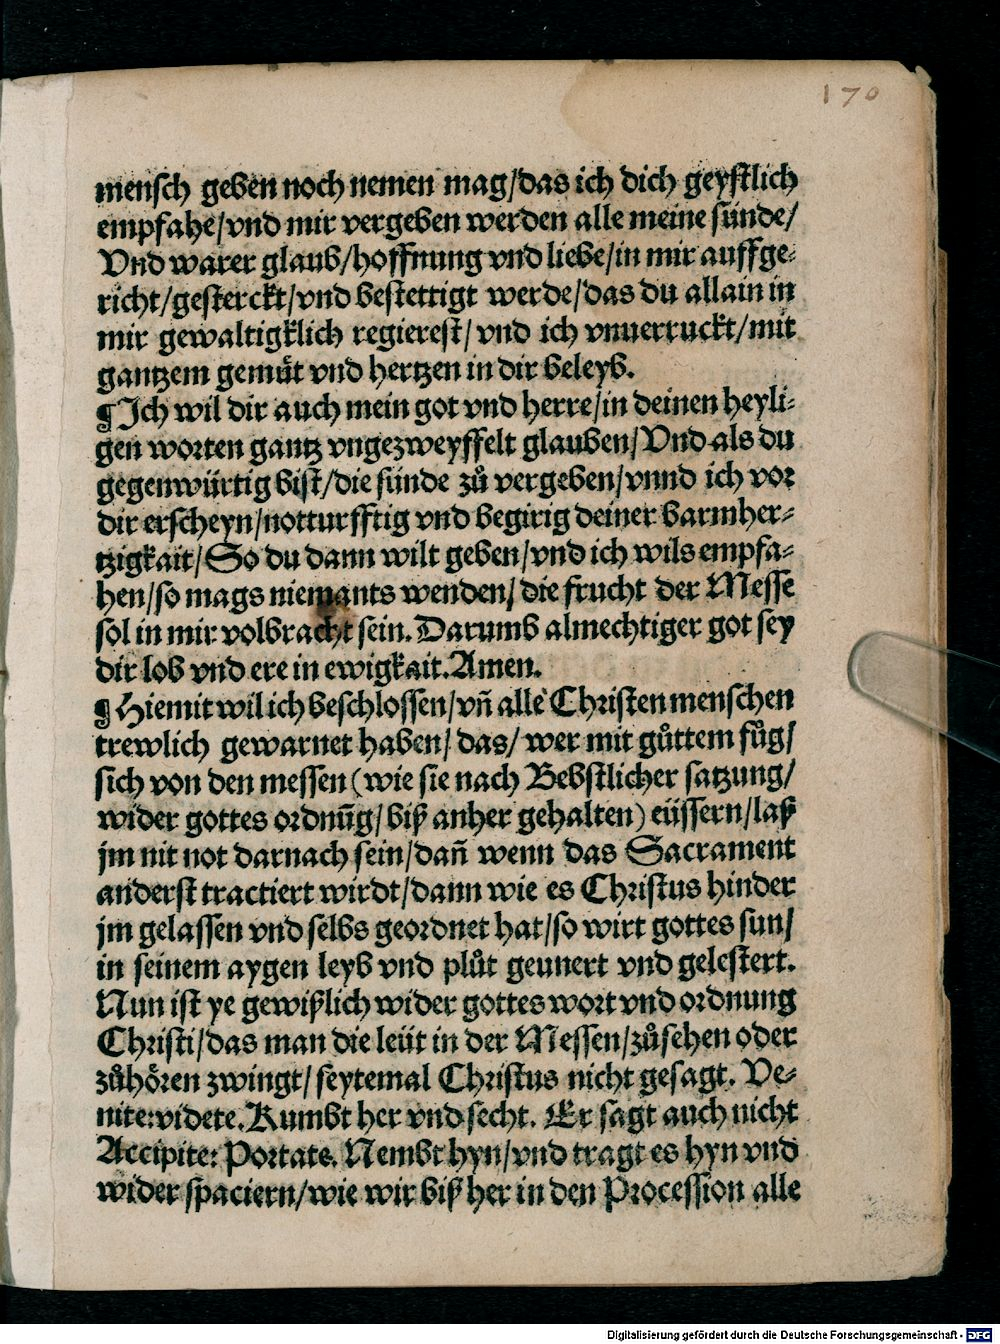 170
mensch geben noch nemen mag/das ich dich geystlich
empfahe/vnd mir vergeben werden alle meine sünde/
Vnd warer glaub/hoffnung vnd liebe/in mir auffge-
richt/gesterckt/vnd bestettigt werde/das du allain in
mir gewaltigklich regierest/vnd ich vnuerruckt/mit
gantzem gemüt vnd hertzen in dir beleyb.
¶Ich wil dir auch mein got vnd herre/in deinen heyli-
gen worten gantz vngezweyffelt glauben/Vnd als du
gegenwürtig bist/die sünde zů vergeben/vnnd ich vor
dir erscheyn/notturfftig vnd begirig deiner barmher-
tzigkait/So du dann wilt geben/vnd ich wils empfa-
hen/so mags niemants wenden/die frucht der Messe
sol in mir volbracht sein. Darumb almechtiger got sey
dir lob vnd ere in ewigkait. Amen.
¶Hiemit wil ich beschlossen/vñ alle Christen menschen
trewlich gewarnet haben/das/wer mit gůttem fůg/
sich von den messen (wie sie nach Bebstlicher satzung/
wider gottes ordnūg/biß anher gehalten) eüssern/laß
jm nit not darnach sein/dañ wenn das Sacrament
anderst tractiert wirdt/dann wie es Christus hinder
jm gelassen vnd selbs geordnet hat/so wirt gottes sun/
in seinem aygen leyb vnd plůt geunert vnd gelestert.
Nun ist ye gewißlich wider gottes wort vnd ordnung
Christi/das man die leüt in der Messen/zůsehen oder
zůhören zwingt/seytemal Christus nicht gesagt. Ve-
nite:videte. Kumbt her vnd secht. Er sagt auch nicht
Accipite: Portate. Nembt hyn/vnd tragt es hyn vnd
wider spaciern/wie wir biß her in den Procession alle
Digitalisierung gefördert durch die Deutsche Forschungsgemeinschaft - DFG